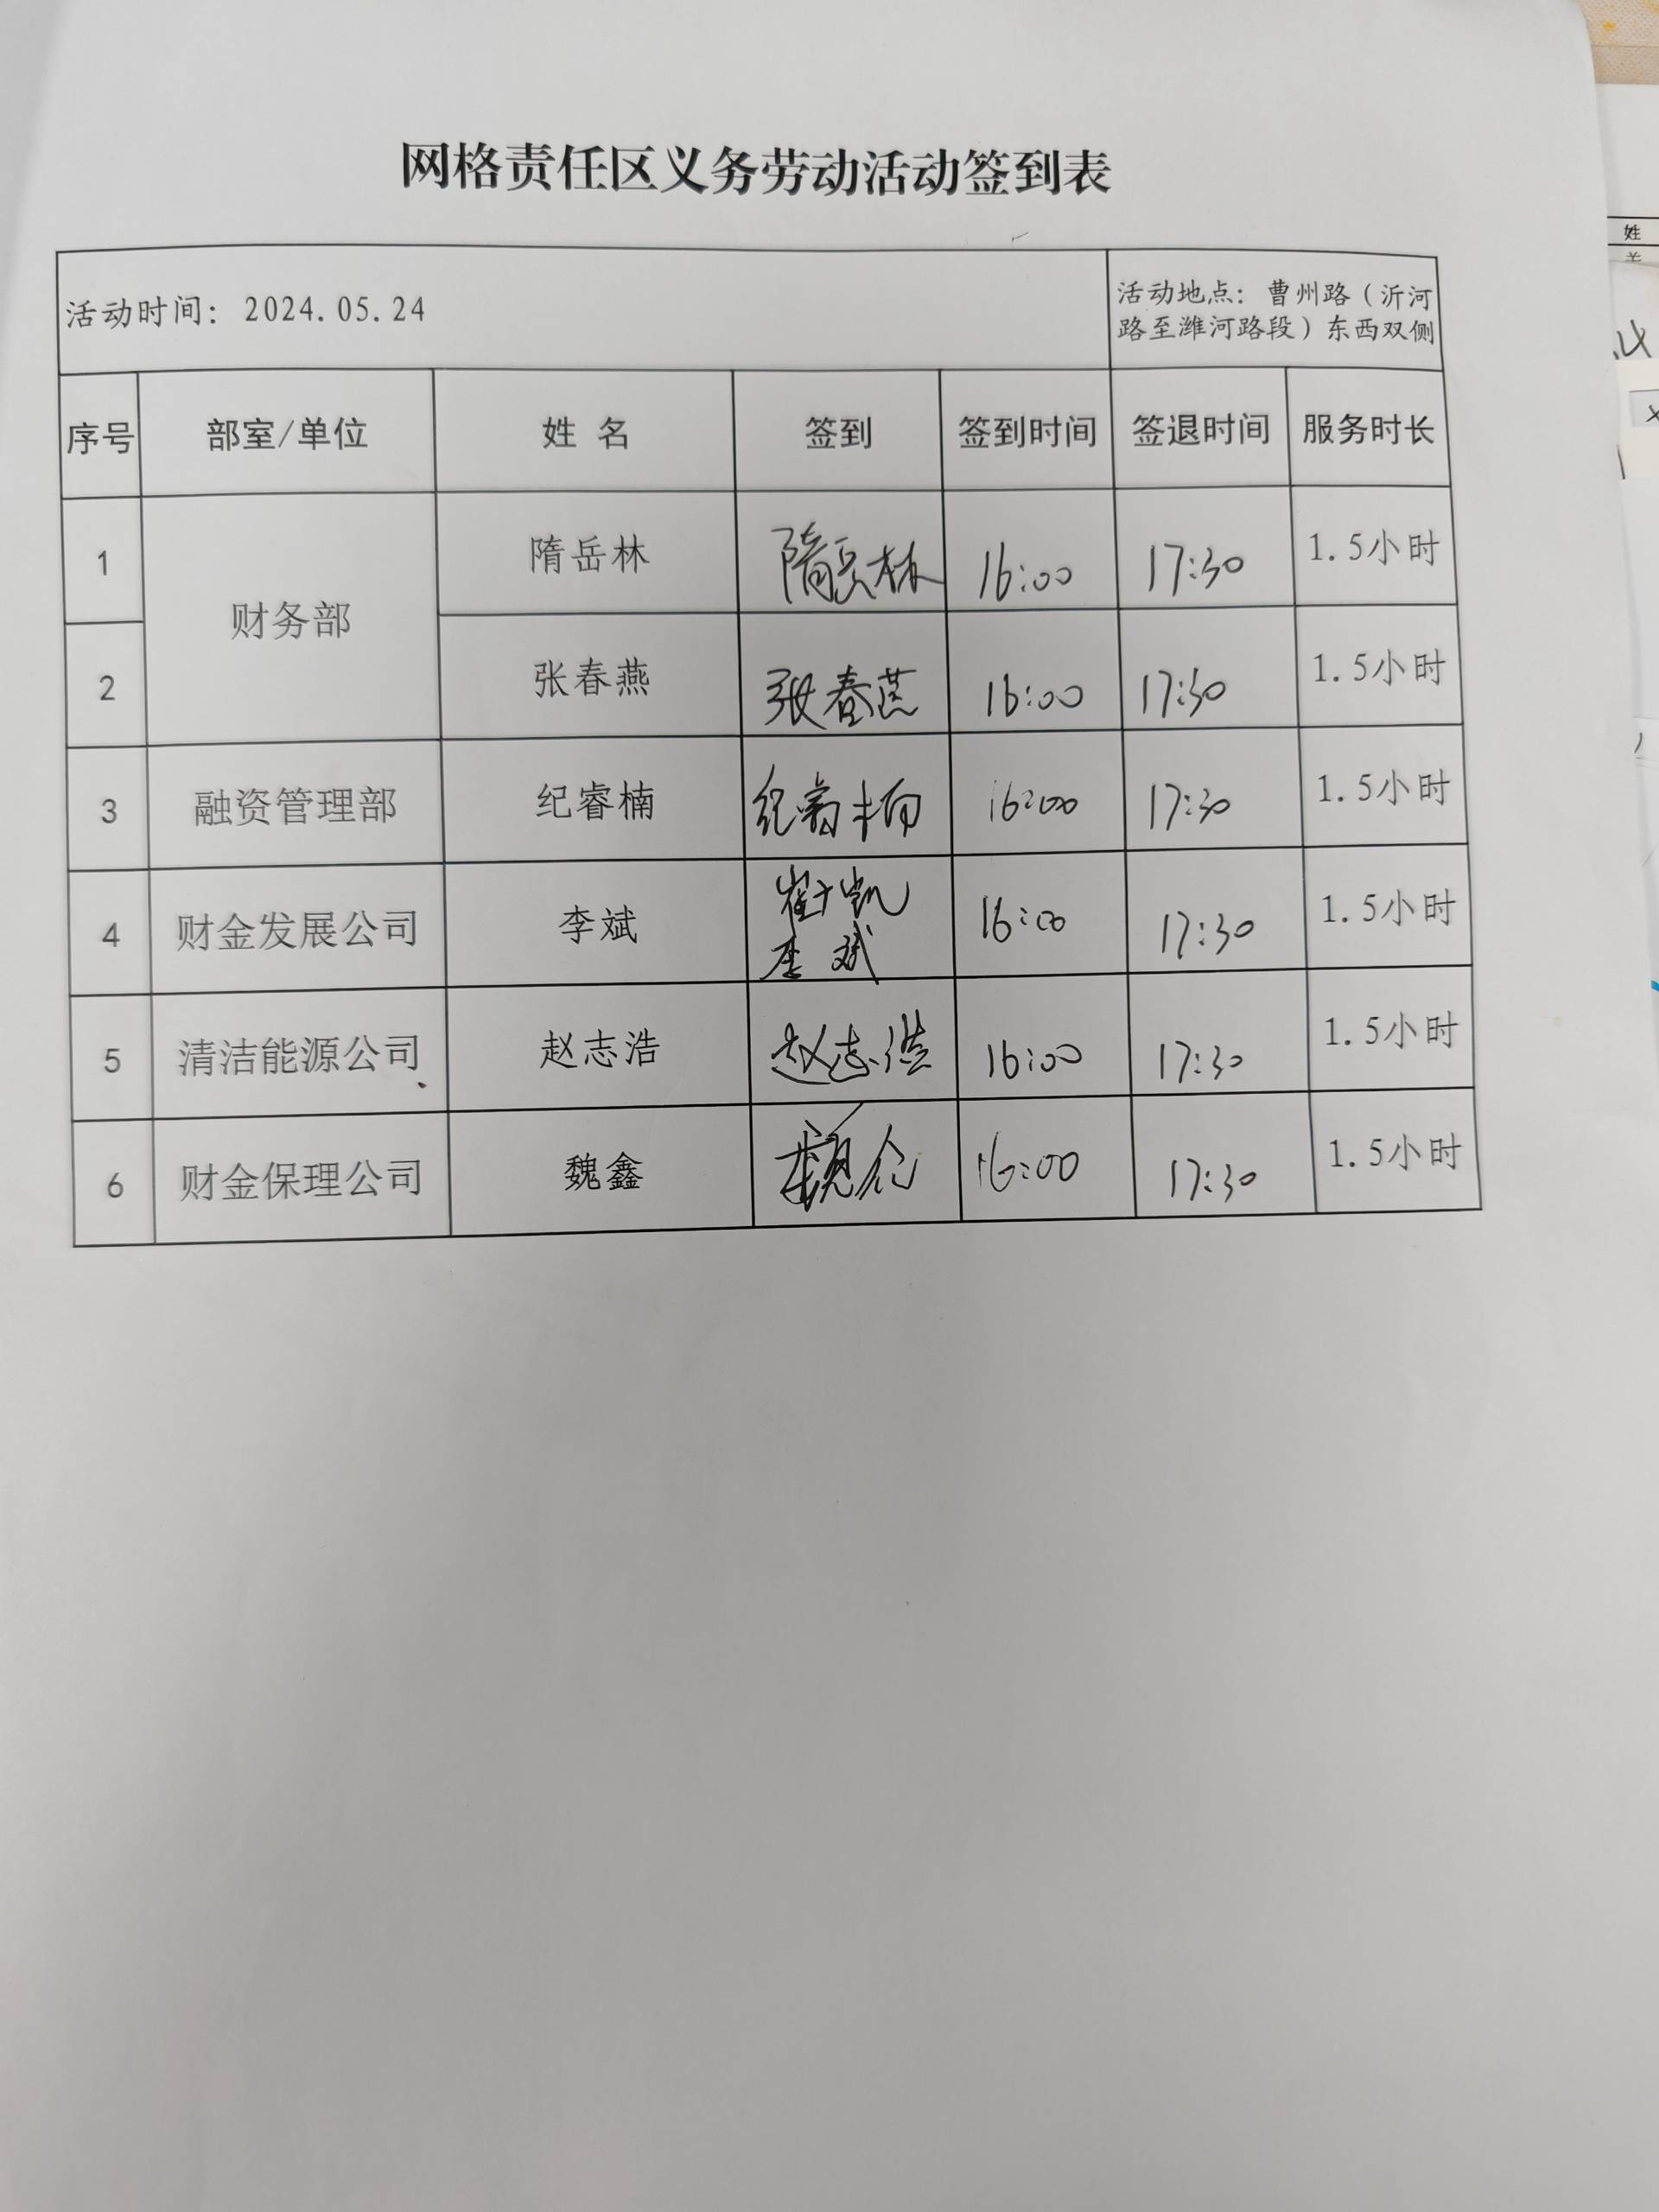 网格责任区义务劳动活动签到表
活动时间：2024.05.24
活动地点：曹州路（沂河
路至潍河路段）东西双侧
序号 部室/单位 姓 名 签到 签到时间 签退时间 服务时长
1 财务部 隋岳林 隋岳林 16:00 17:30 1.5小时
2 张春燕 张春燕 16:00 17:30 1.5小时
3 融资管理部 纪睿楠 纪睿楠 16:00 17:30 1.5小时
4 财金发展公司 李斌 李斌 16:00 17:30 1.5小时
5 清洁能源公司 赵志浩 赵志浩 16:00 17:30 1.5小时
6 财金保理公司 魏鑫 16:00 17:30 1.5小时
姓